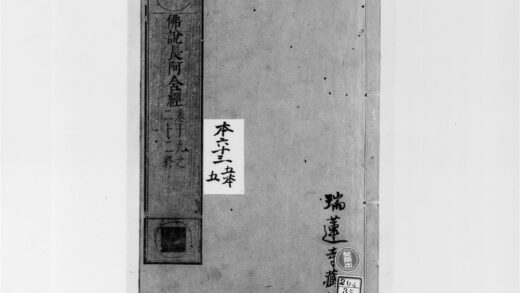 佛說長阿含經
卷十九之
二十二終
本六十三
五本
五
瑞蓮寺藏